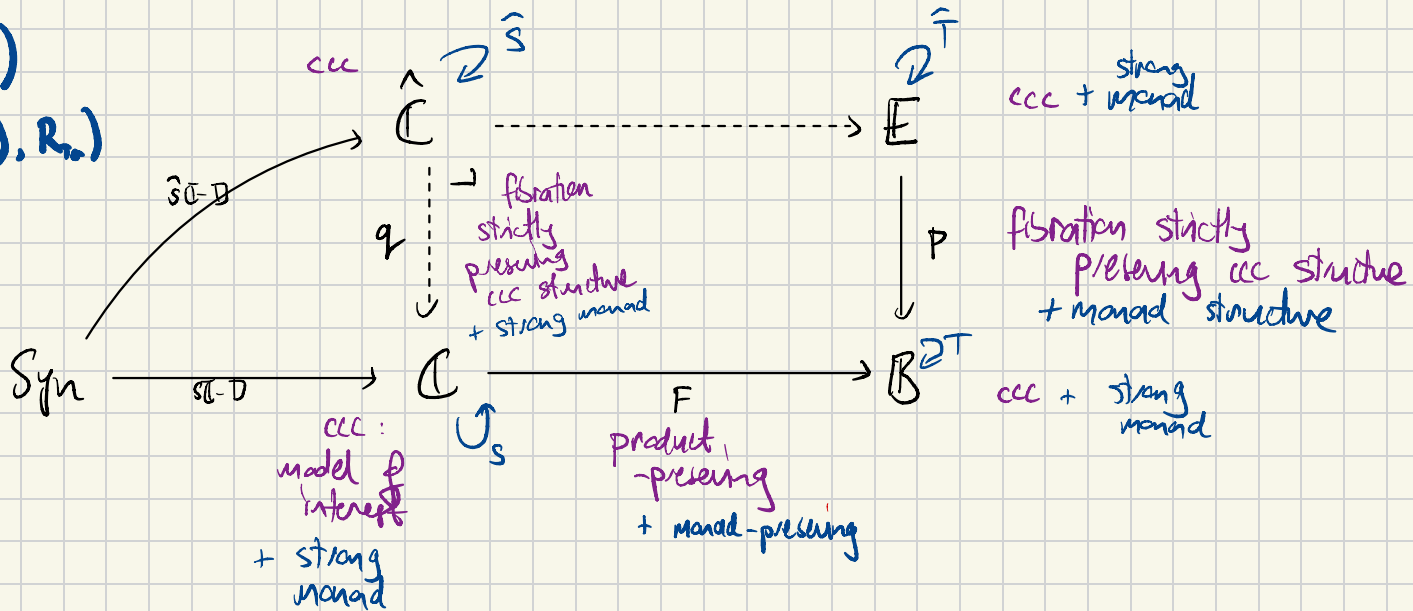 Ŝ
T̂
ccc
)
Ĉ
E
strong
ccc + monad
), R
ŝ⟦-⟧
fibration
q
strictly
preserving
ccc structure
+ strong monad
p
fibration strictly
preserving ccc structure
+ monad structure
Syn
s⟦-⟧
C
F
B
T
ccc + strong
monad
S
ccc:
model of
interest
+ strong
monad
product
-preserving
+ monad-preserving